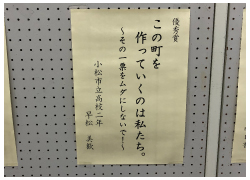 優秀賞
この町を
作っていくのは私たち。
～その一票をムダにしないで！～
小松市立高校二年
早松 美歓